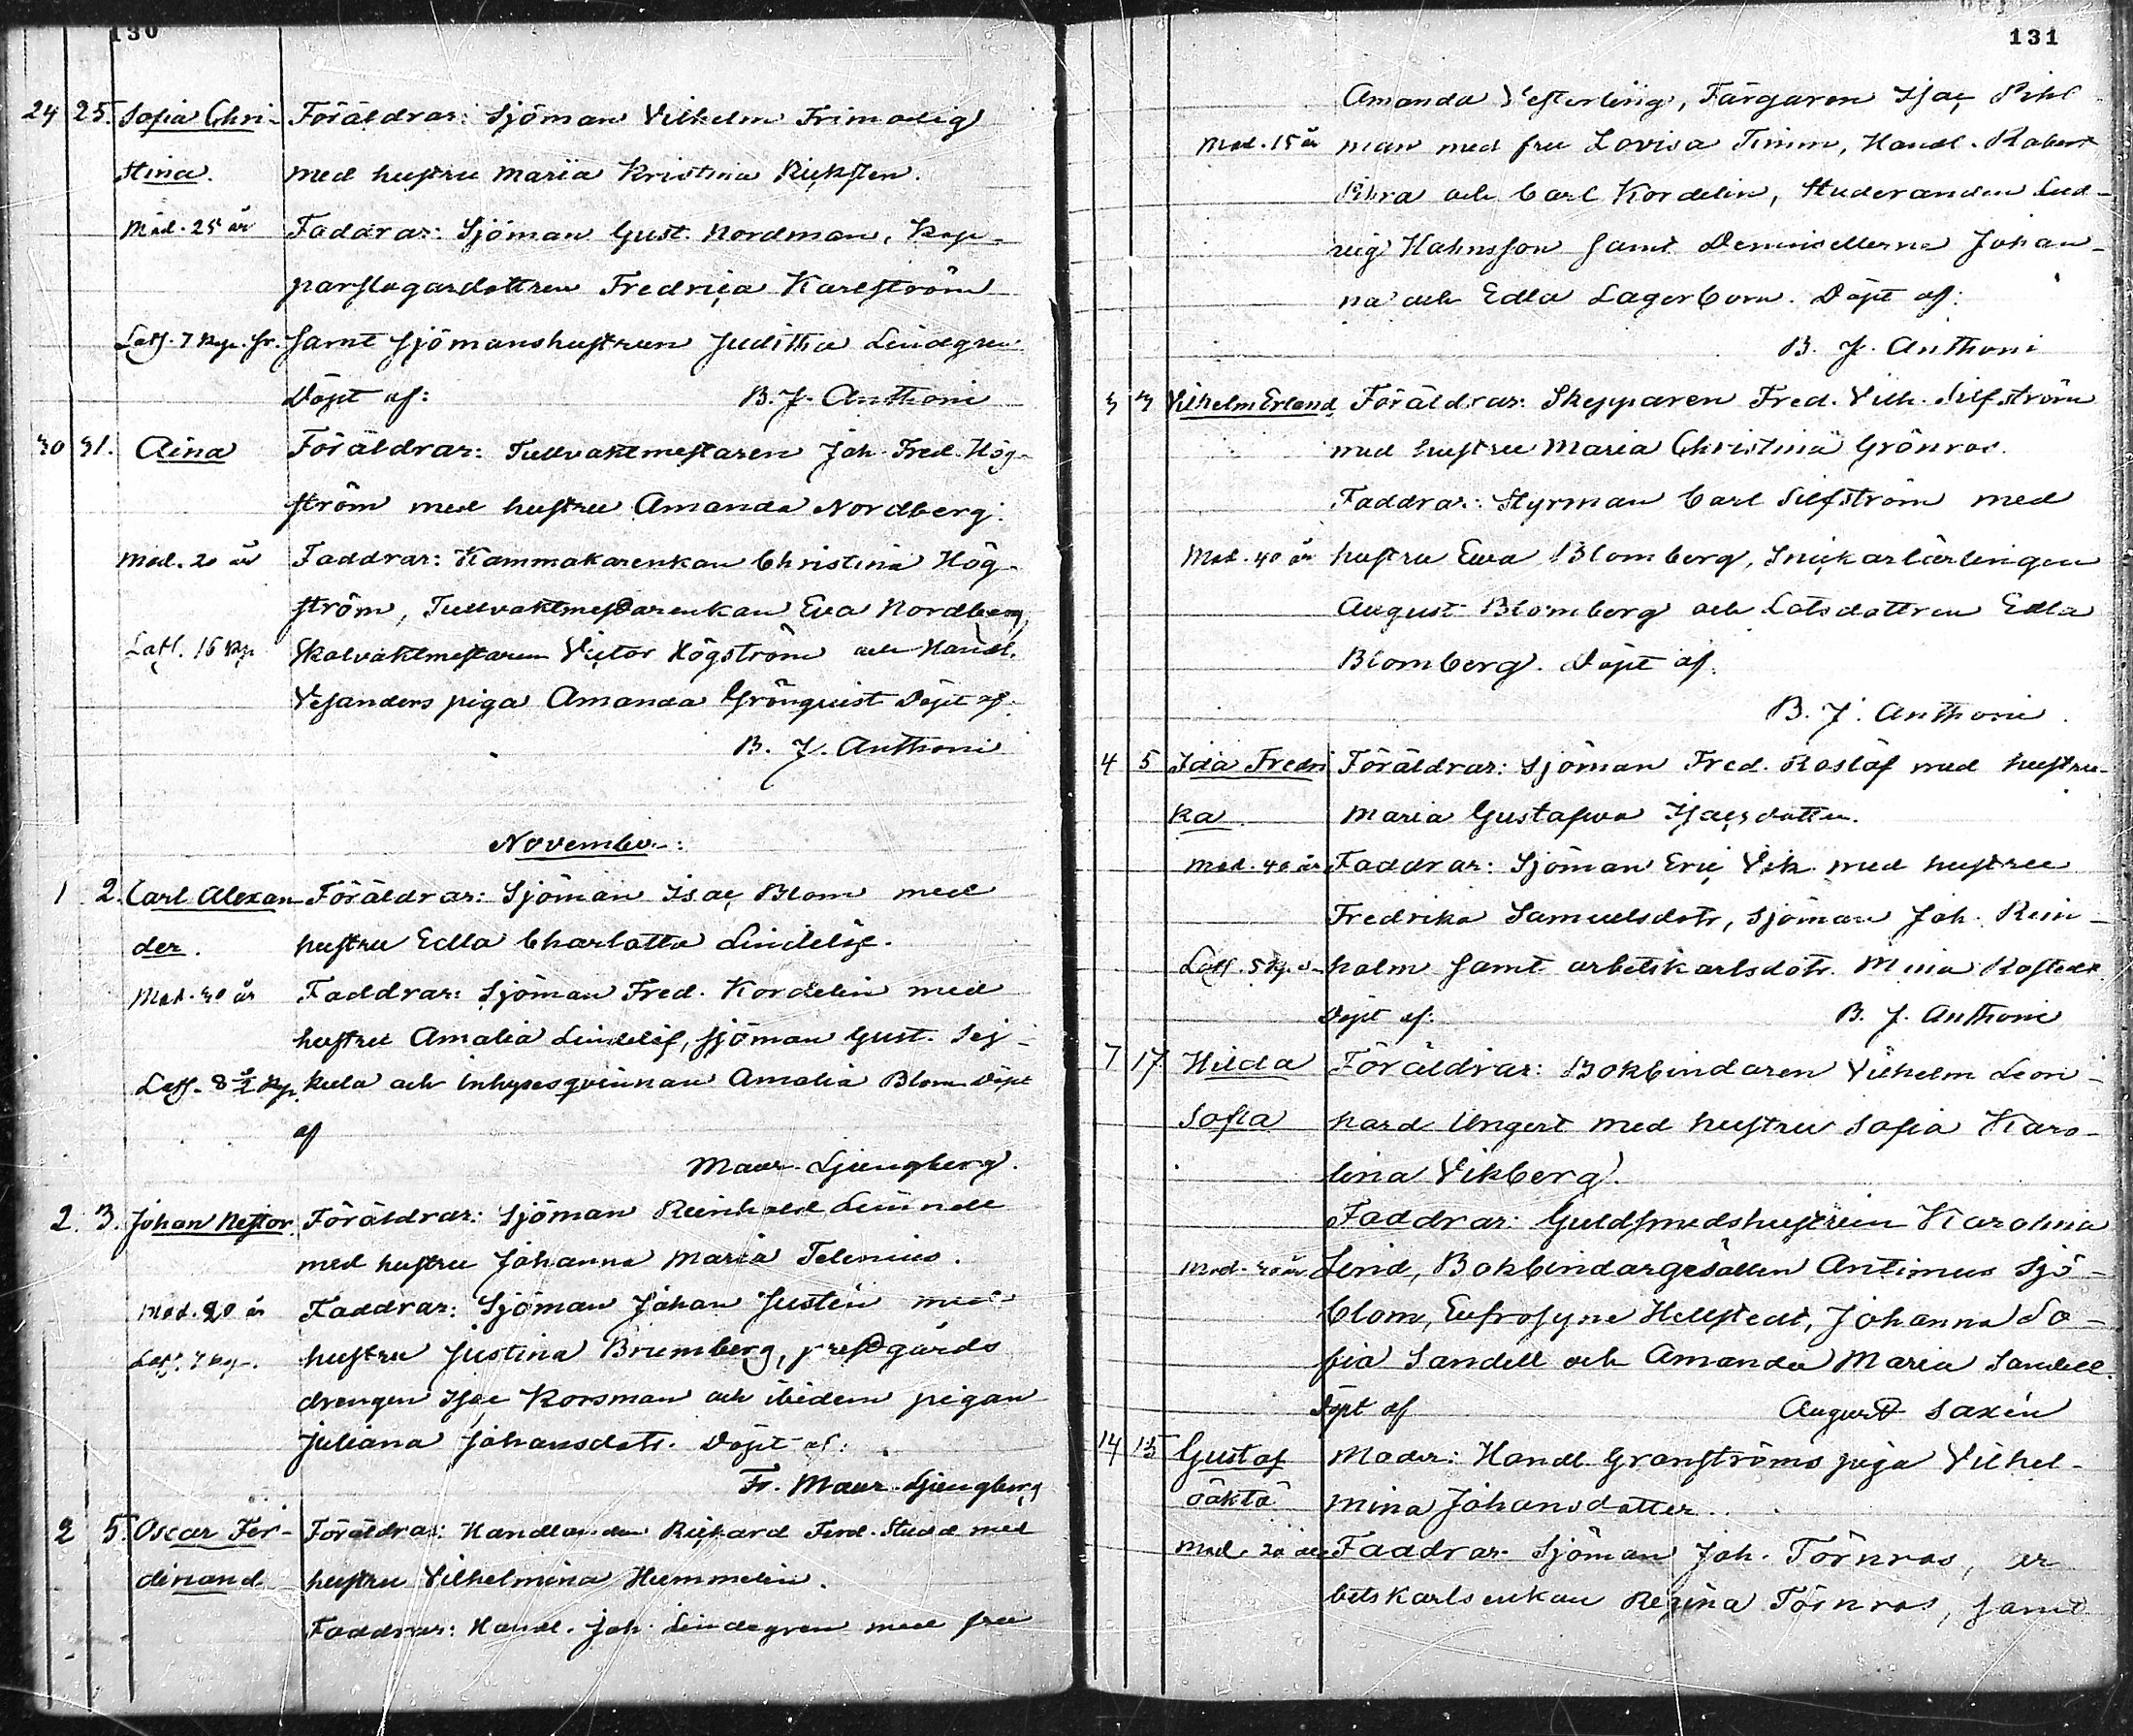 130
24 25. Sofia Chri- Föräldrar: Sjöman Vilhelm Frimodig
stina. med hustru Maria Kristina Rickstén.
Mod. 25 år Faddrar: Sjöman Gust. Nordman, Kop-
parslagardottren Fredrica Karlström
Läsf. 7 Kp. fr. samt sjömanshustrun Juditha Lindgren
Döpt af: B. J. Anthoni
30 31. Aina Föräldrar: Tullvaktmestaren Joh. Fred. Hög-
ström med hustru Amanda Nordberg.
Mod. 20 år Faddrar: Kammakarenkan Christina Hög-
ström, Tullvaktmestarenkan Eva Nordberg,
Läsf. 16 Kp. Skolvaktmestaren Victor Högström och Handl.
Vesanders piga Amanda Grönquist Döpt af:
B. J. Anthoni
November:
1 2. Carl Alexan- Föräldrar: Sjöman Isac Blom med
der. hustru Edla Charlotta Lindelöf.
Mod. 30 år Faddrar: Sjöman Fred. Kordelin med
hustru Amalia Lindelöf, sjöman Gust. Sej-
Läsf. 8 ½ Kp. kula och inhysesqvinnan Amalia Blom Döpt
af
Maur. Ljungberg.
2. 3. Johan Nestor. Föräldrar: Sjöman Reinhold
med hustru Johanna Maria Telenius.
Mod. 20 år Faddrar: Sjöman Johan Justén med
Läsf. 7 Kp. hustru Justina Brumberg, prestgårds
drengen Isac Korsman och ibidem pigan
Juliana Johansdotr. Döpt af:
Fr. Maur. Ljungberg
2 5. Oscar Fer- Föräldrar: Handlanden Rickard Ferd. Studd med
dinand hustru Vilhelmina Hummelin.
Faddrar: Handl. Joh. Lindegren med fru
131
Amanda Vesterling, Färgaren Isac Pihl-
Mod. 15 år man med fru Lovisa Timm, Handl. Robert
och Carl Kordelin, Studeranden Lud-
vig Hahnsson samt Demoisellerna Johan-
na och Edla Lagerborn. Döpt af:
B. J. Anthoni
3 3 Vilhelm Erland Föräldrar: Skepparen Fred. Vilh. Silfström
med hustru Maria Christina Grönros.
Faddrar: Styrman Carl Silfström med
Mod. 40 år hustru Ewa Blomberg, Snickarlärlingen
August Blomberg och Lotsdottren Edla
Blomberg. Döpt af:
B. J. Anthoni.
4 5 Ida Fredri Föräldrar: Sjöman Fred. Roslöf med hustru
ka Maria Gustafwa Isacsdotter.
Mod. 40 år Faddrar: Sjöman Eric Vik med hustru
Fredrika Samuelsdotr, Sjöman Joh. Rein-
Läsf. 5 Kp. holm samt arbetskarlsdotr. Mina Rostedt
Döpt af: B. J. Anthoni
7 17 Hilda Föräldrar: Bokbindaren Vilhelm Leon-
Sofia hard Ungert med hustru Sofia Karo-
lina Vikberg.
Faddrar: Guldsmedshustrun Karolina
Mod. 30 år Lind, Bokbindargesällen Antimus Sjö-
blom, Eufrosyne Hellstedt, Johanna So-
fia Sandell och Amanda Maria Sandell.
Döpt af August Saxén
14 15 Gustaf Moder: Handl. Granströms piga Vilhel-
oäkta mina Johansdotter.
Mod. 20 år Faddrar: Sjöman Joh. Törnros, ar
betskarlsenkan Regina Törnros, samt